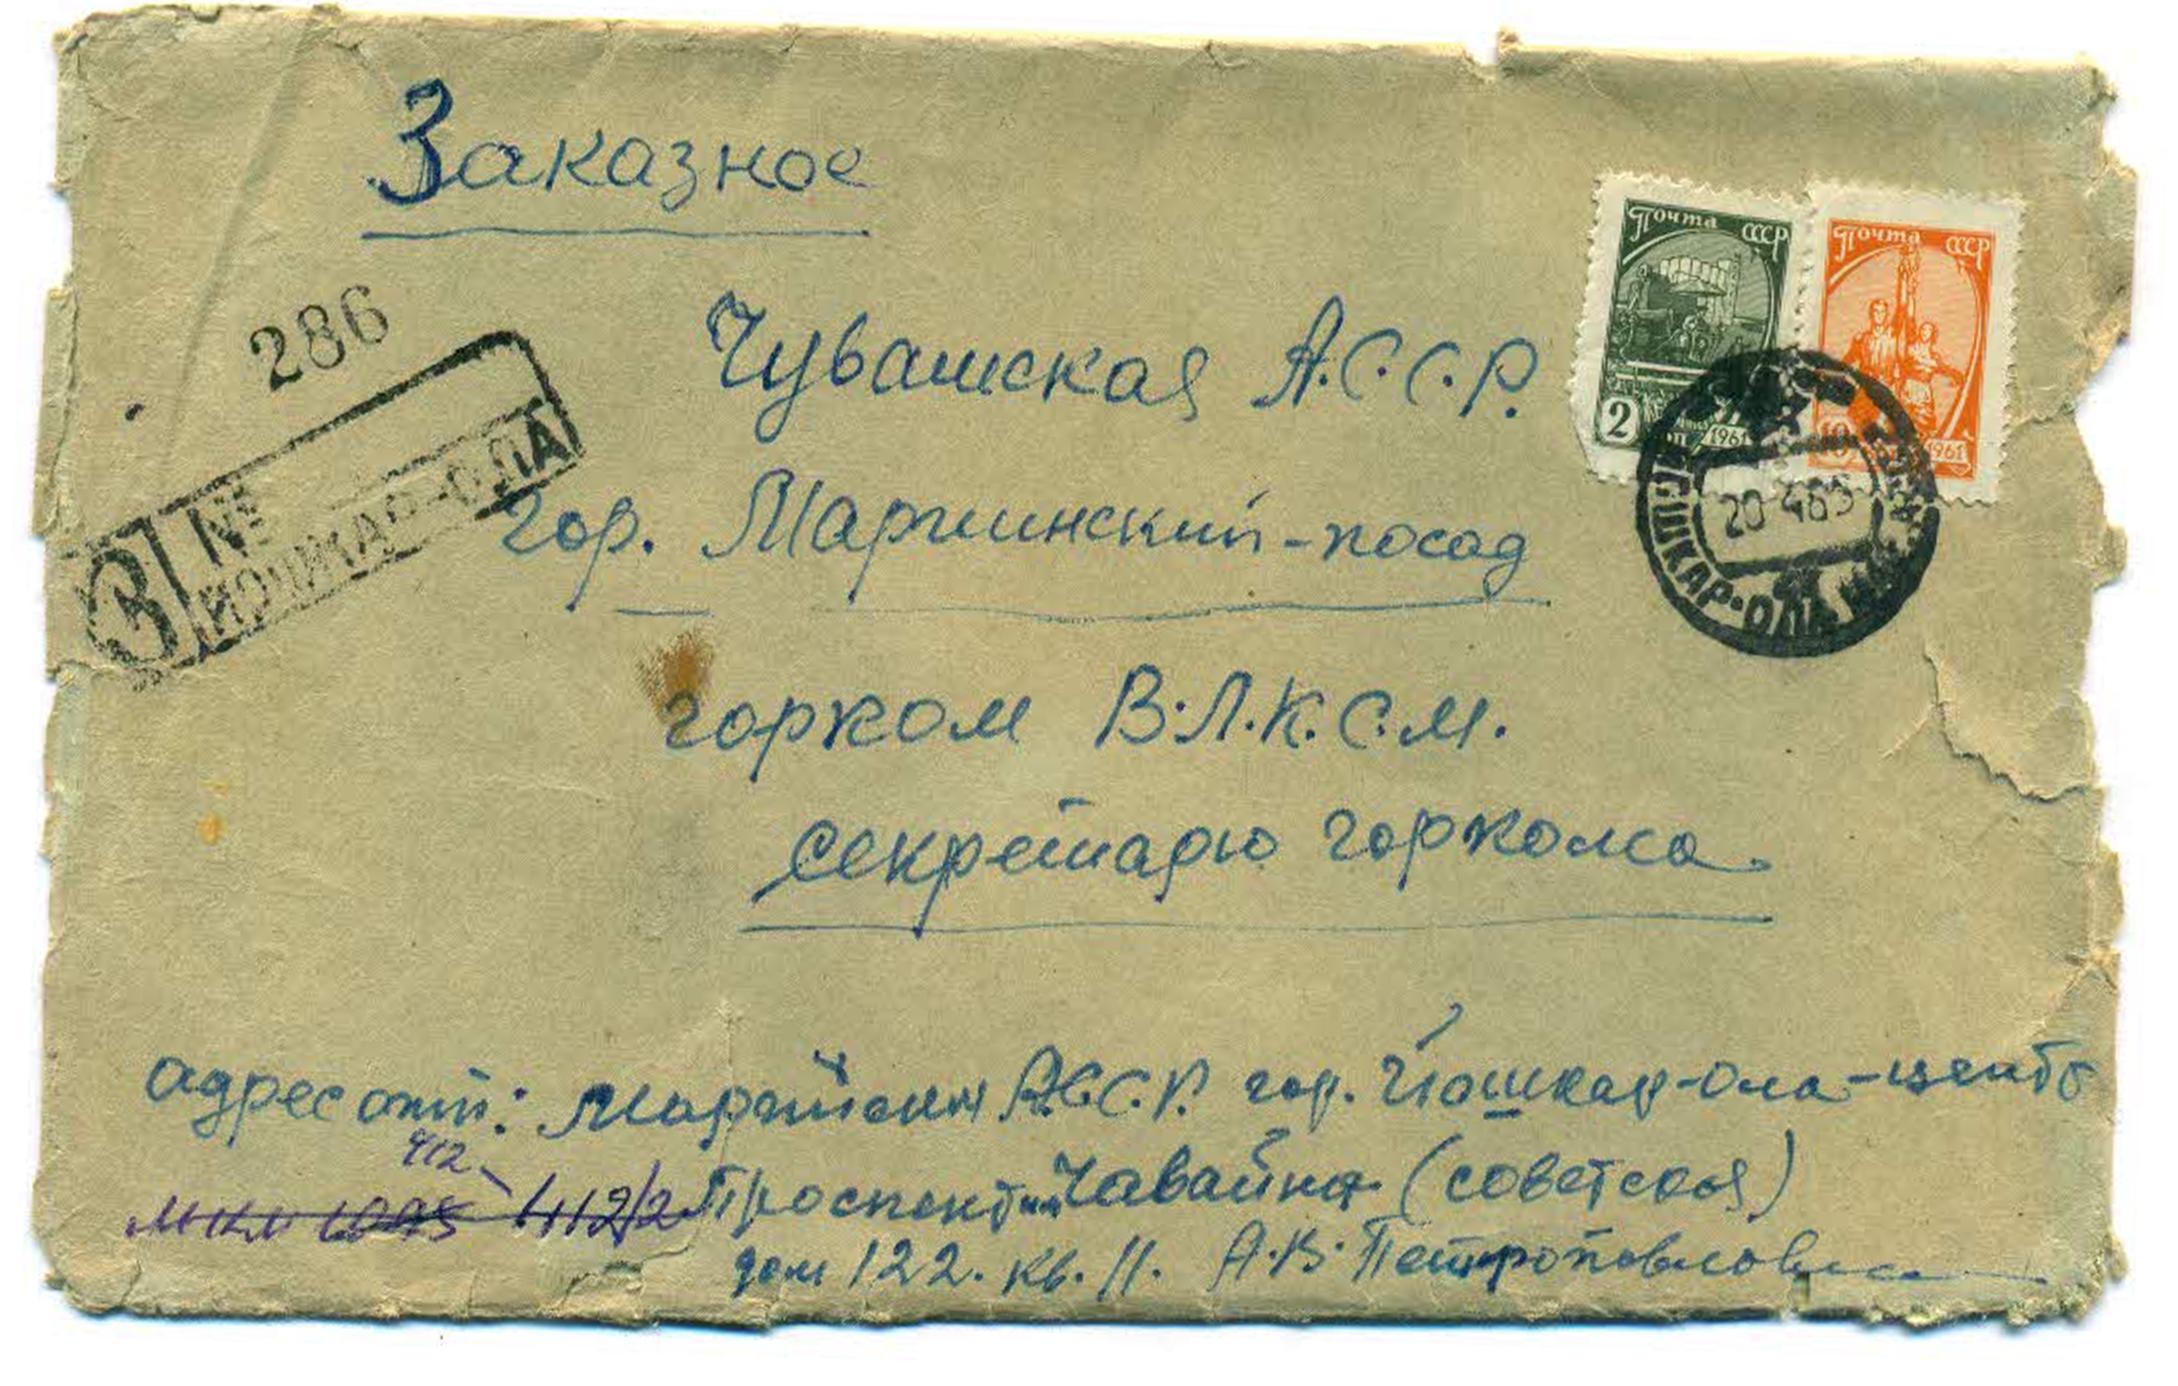 Заказное
Почта СССР
Почта СССР
286
Чувашская А.С.С.Р.
2
1961
10
1961
№
З ЙОШКАР-ОЛА
20-4 65
ЙОШКАР-ОЛА
гор. Мариинский-посад
горком В.Л.К.С.М.
секретарю горкома
адрес от: Марийская А.С.С.Р. гор. Йошкар-Ола-центр
412
412/2 Проспект им Чавайна (советская)
дом 122. кв. 11. А.В. Петропавловск